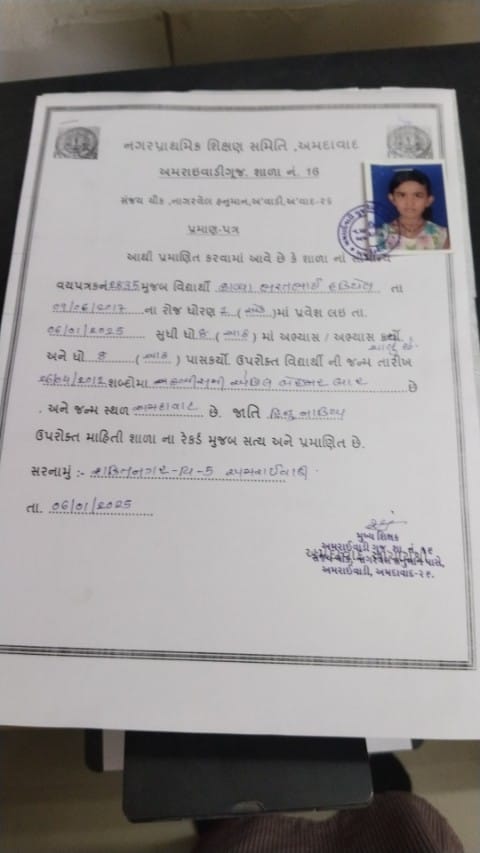 નગરપ્રાથમિક શિક્ષણ સમિતિ ,અમદાવાદ
અમરાઇવાડીગુજ. શાળા નં. 16
સંજય ચોક ,નાગરવેલ હનુમાન,અ'વાડી,અ'વાદ-૨૬
પ્રમાણ-પત્ર
આથી પ્રમાણિત કરવામાં આવે છે કે શાળા ના સામાન્ય
વયપત્રકનં 2835 મુજબ વિદ્યાર્થી ભરતભાઈ તા
09/06/2017 ના રોજ ધોરણ ૧ (એક) માં પ્રવેશ લઇ તા.
06/01/2025 સુધી ધો 8 (આઠ) માં અભ્યાસ / અભ્યાસ કર્યો.
ચાલુ છે.
અને ધો 8 (આઠ) પાસકર્યો. ઉપરોક્ત વિદ્યાર્થી ની જન્મ તારીખ
શબ્દોમા અઠ્ઠાવીસમી એપ્રિલ બે હજાર બાર છે
. અને જન્મ સ્થળ અમદાવાદ છે. જાતિ હિન્દુ
ઉપરોક્ત માહિતી શાળા ના રેકર્ડ મુજબ સત્ય અને પ્રમાણિત છે.
સરનામું :- શક્તિનગર-વિ-5 અમરાઈવાડી.
તા. 06/01/2025
મુખ્ય શિક્ષક
અમરાઈવાડી ગુજ. શા. નં. ૧૬
અમરાઈવાડી, અમદાવાદ-૨૬.